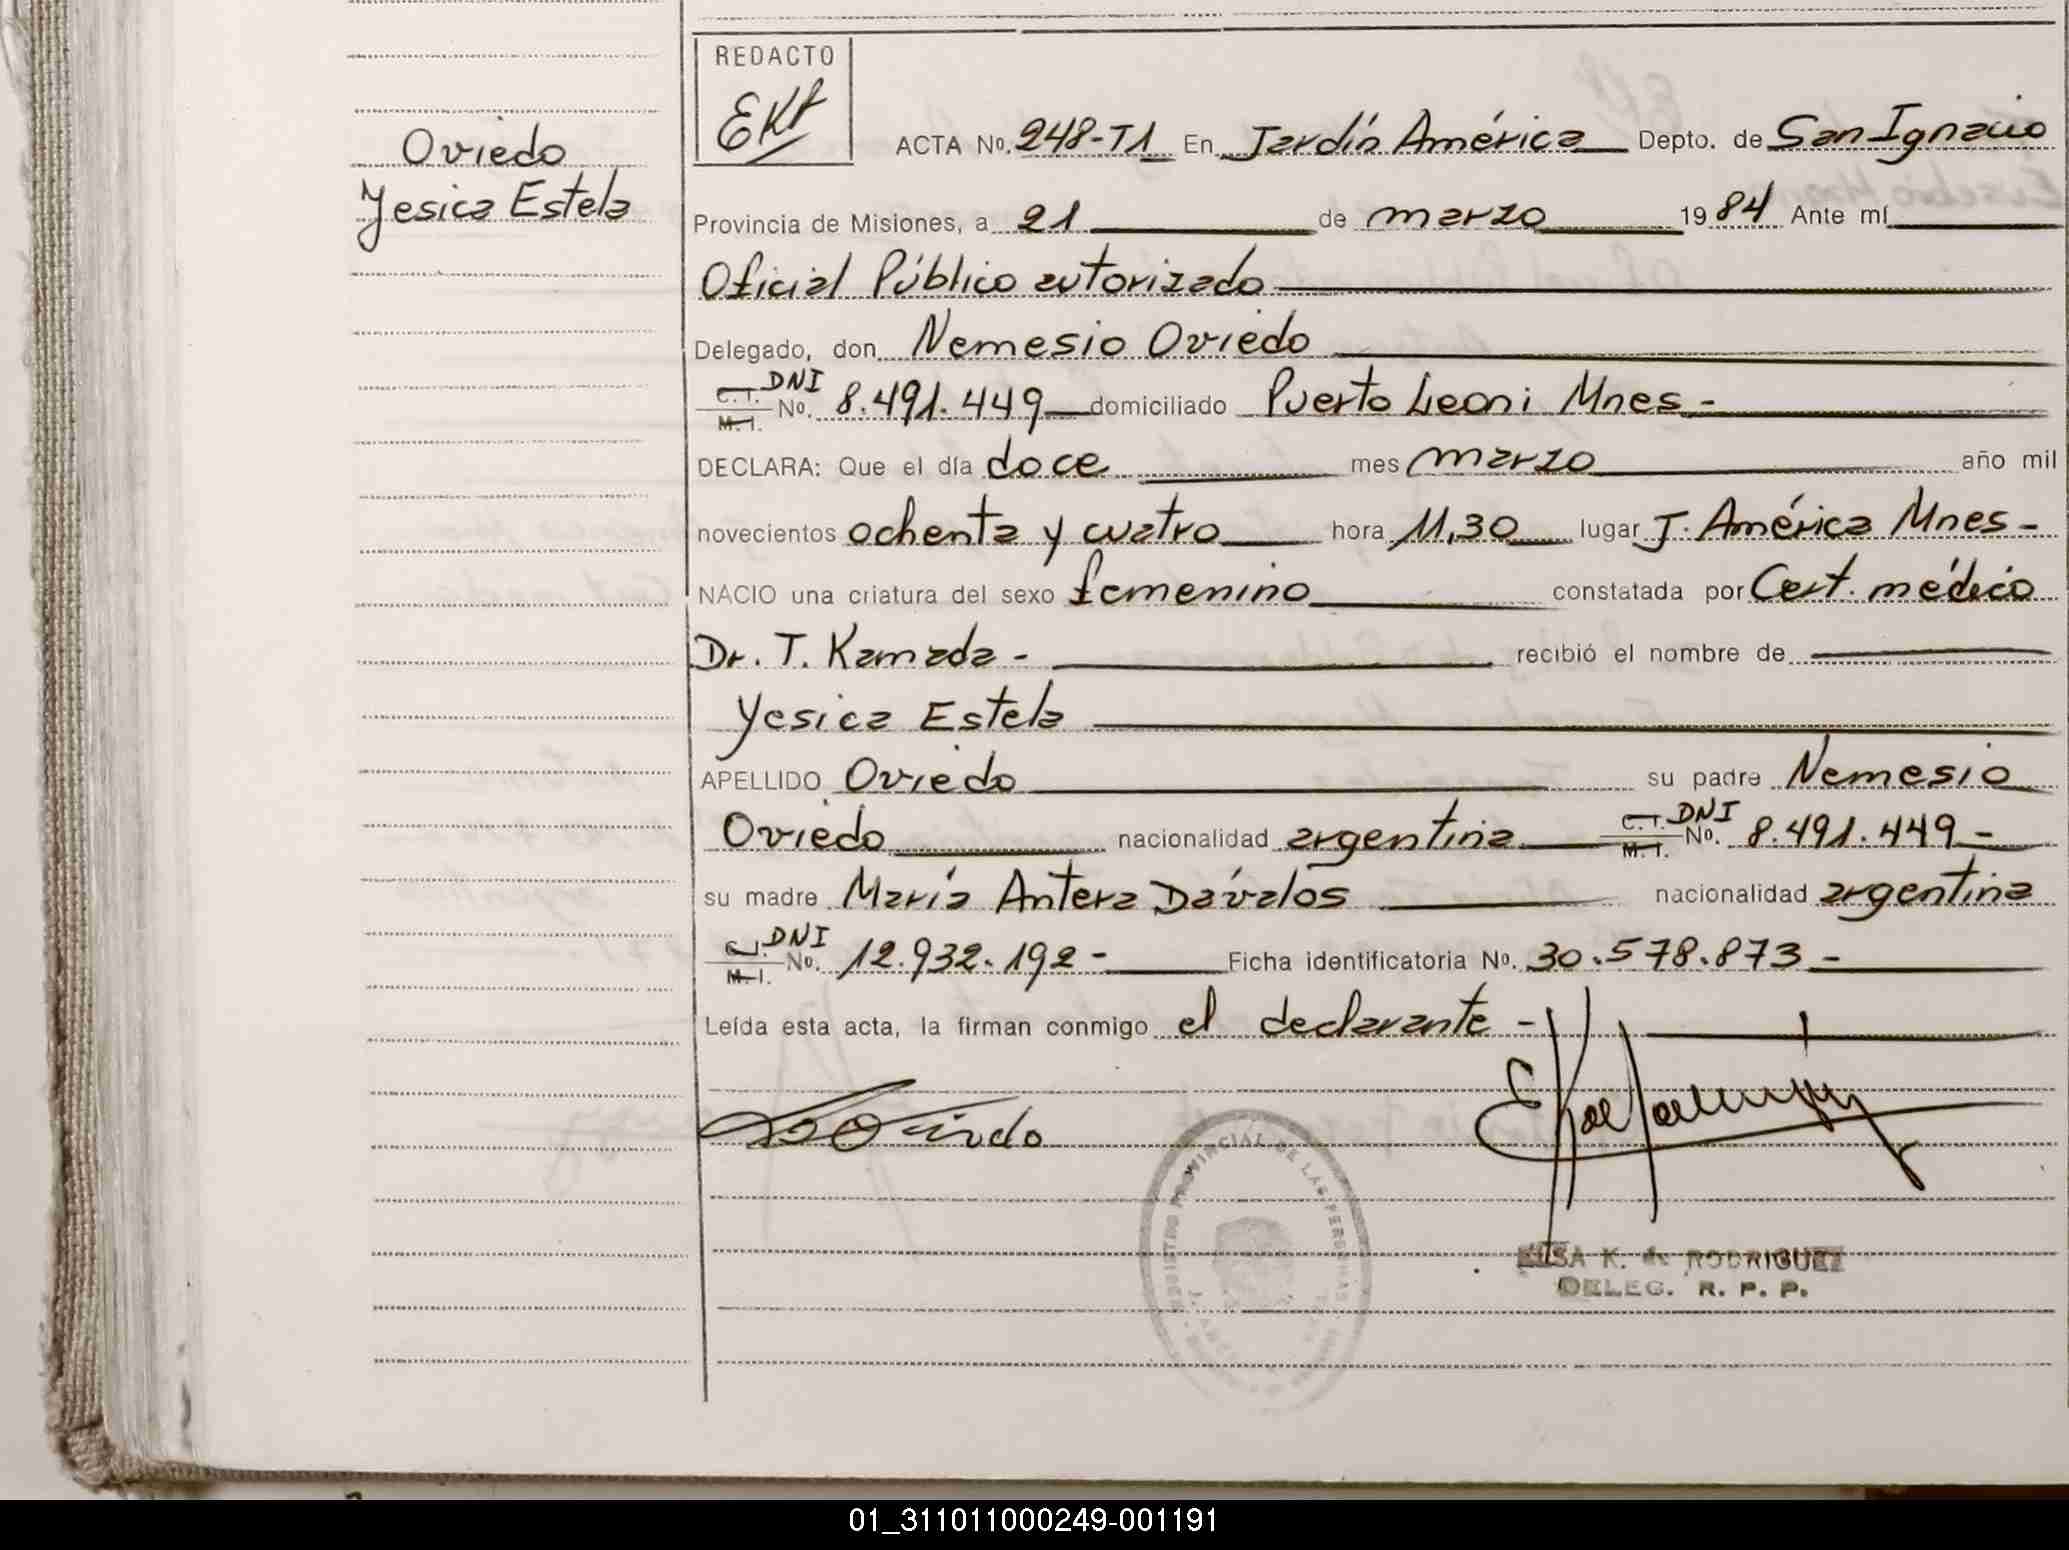 REDACTO
EKR
Oviedo
Yesica Estela
ACTA No. 248-T1 En Jardín América Depto. de San Ignacio
Provincia de Misiones, a 21 de marzo 1984 Ante mí
Oficial Público autorizado
Delegado, don Nemesio Oviedo
C.I. DNI
M.I. No. 8.491.449 domiciliado Puerto Leoni Mnes -
DECLARA: Que el día doce mes marzo año mil
novecientos ochenta y cuatro hora 11,30 lugar J. América Mnes -
NACIO una criatura del sexo femenino constatada por Cert. médico
Dr. T. Kamada - recibió el nombre de
Yesica Estela
APELLIDO Oviedo su padre Nemesio
Oviedo nacionalidad argentina C.I. DNI M.I. No. 8.491.449 -
su madre María Antera Dávalos nacionalidad argentina
C.I. DNI
M.I. No. 12.932.192 - Ficha identificatoria No. 30.578.873 -
Leída esta acta, la firman conmigo el declarante -
Oviedo
REGISTRO PROVINCIAL DE LAS PERSONAS
ELSA K. de RODRIGUEZ
DELEG. R. P. P.
01_311011000249-001191